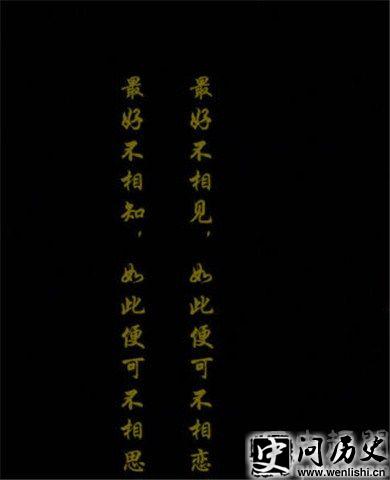 最好不相见，如此便可不相恋
最好不相知，如此便可不相思
史问历史
www.wenlishi.cn